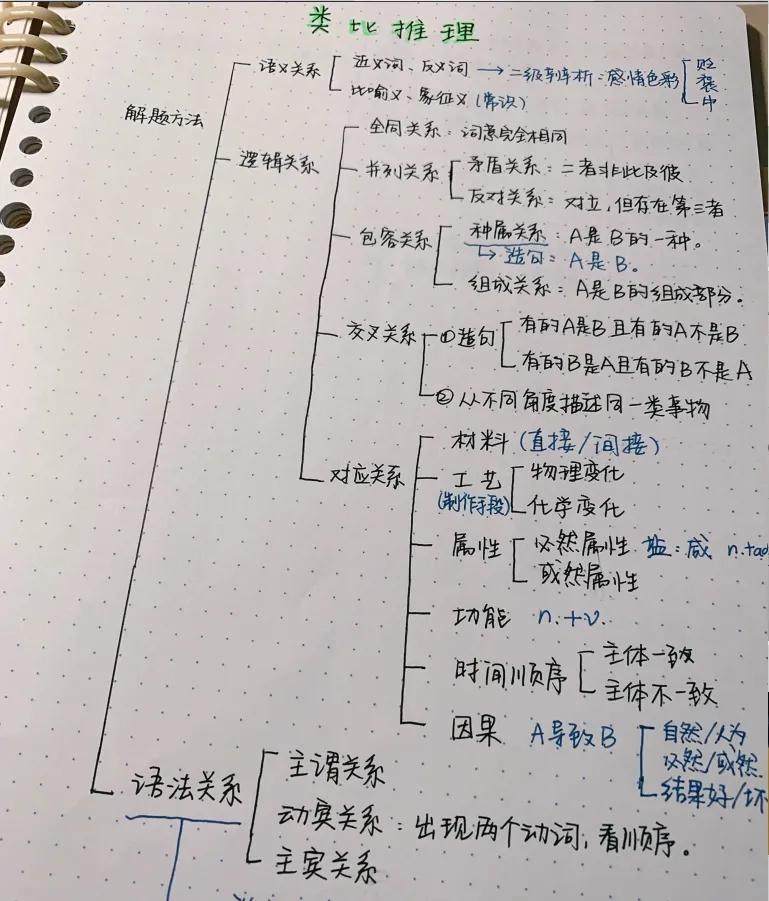 类比推理
解题方法
语义关系
近义词、反义词 → 二级辨析:感情色彩
贬
褒
中
比喻义、象征义(常识)
逻辑关系
全同关系:词意完全相同
并列关系
矛盾关系:二者非此及彼
反对关系:对立,但存在第三者
包容关系
种属关系:A是B的一种。
↳造句:A是B。
组成关系:A是B的组成部分。
交叉关系
①造句
有的A是B且有的A不是B
有的B是A且有的B不是A
②从不同角度描述同一类事物
对应关系
材料(直接/间接)
工艺
(制作手段)
物理变化
化学变化
属性
必然属性 盐:咸 n.+ad
或然属性
功能 n.+v.
时间顺序
主体一致
主体不一致
因果 A导致B
自然/人为
必然/或然
结果好/坏
语法关系
主谓关系
动宾关系:出现两个动词,看顺序。
主宾关系